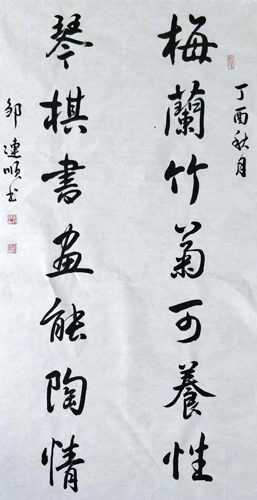 丁酉秋月
梅蘭竹菊可養性
琴棋書畫能陶情
邹連順书